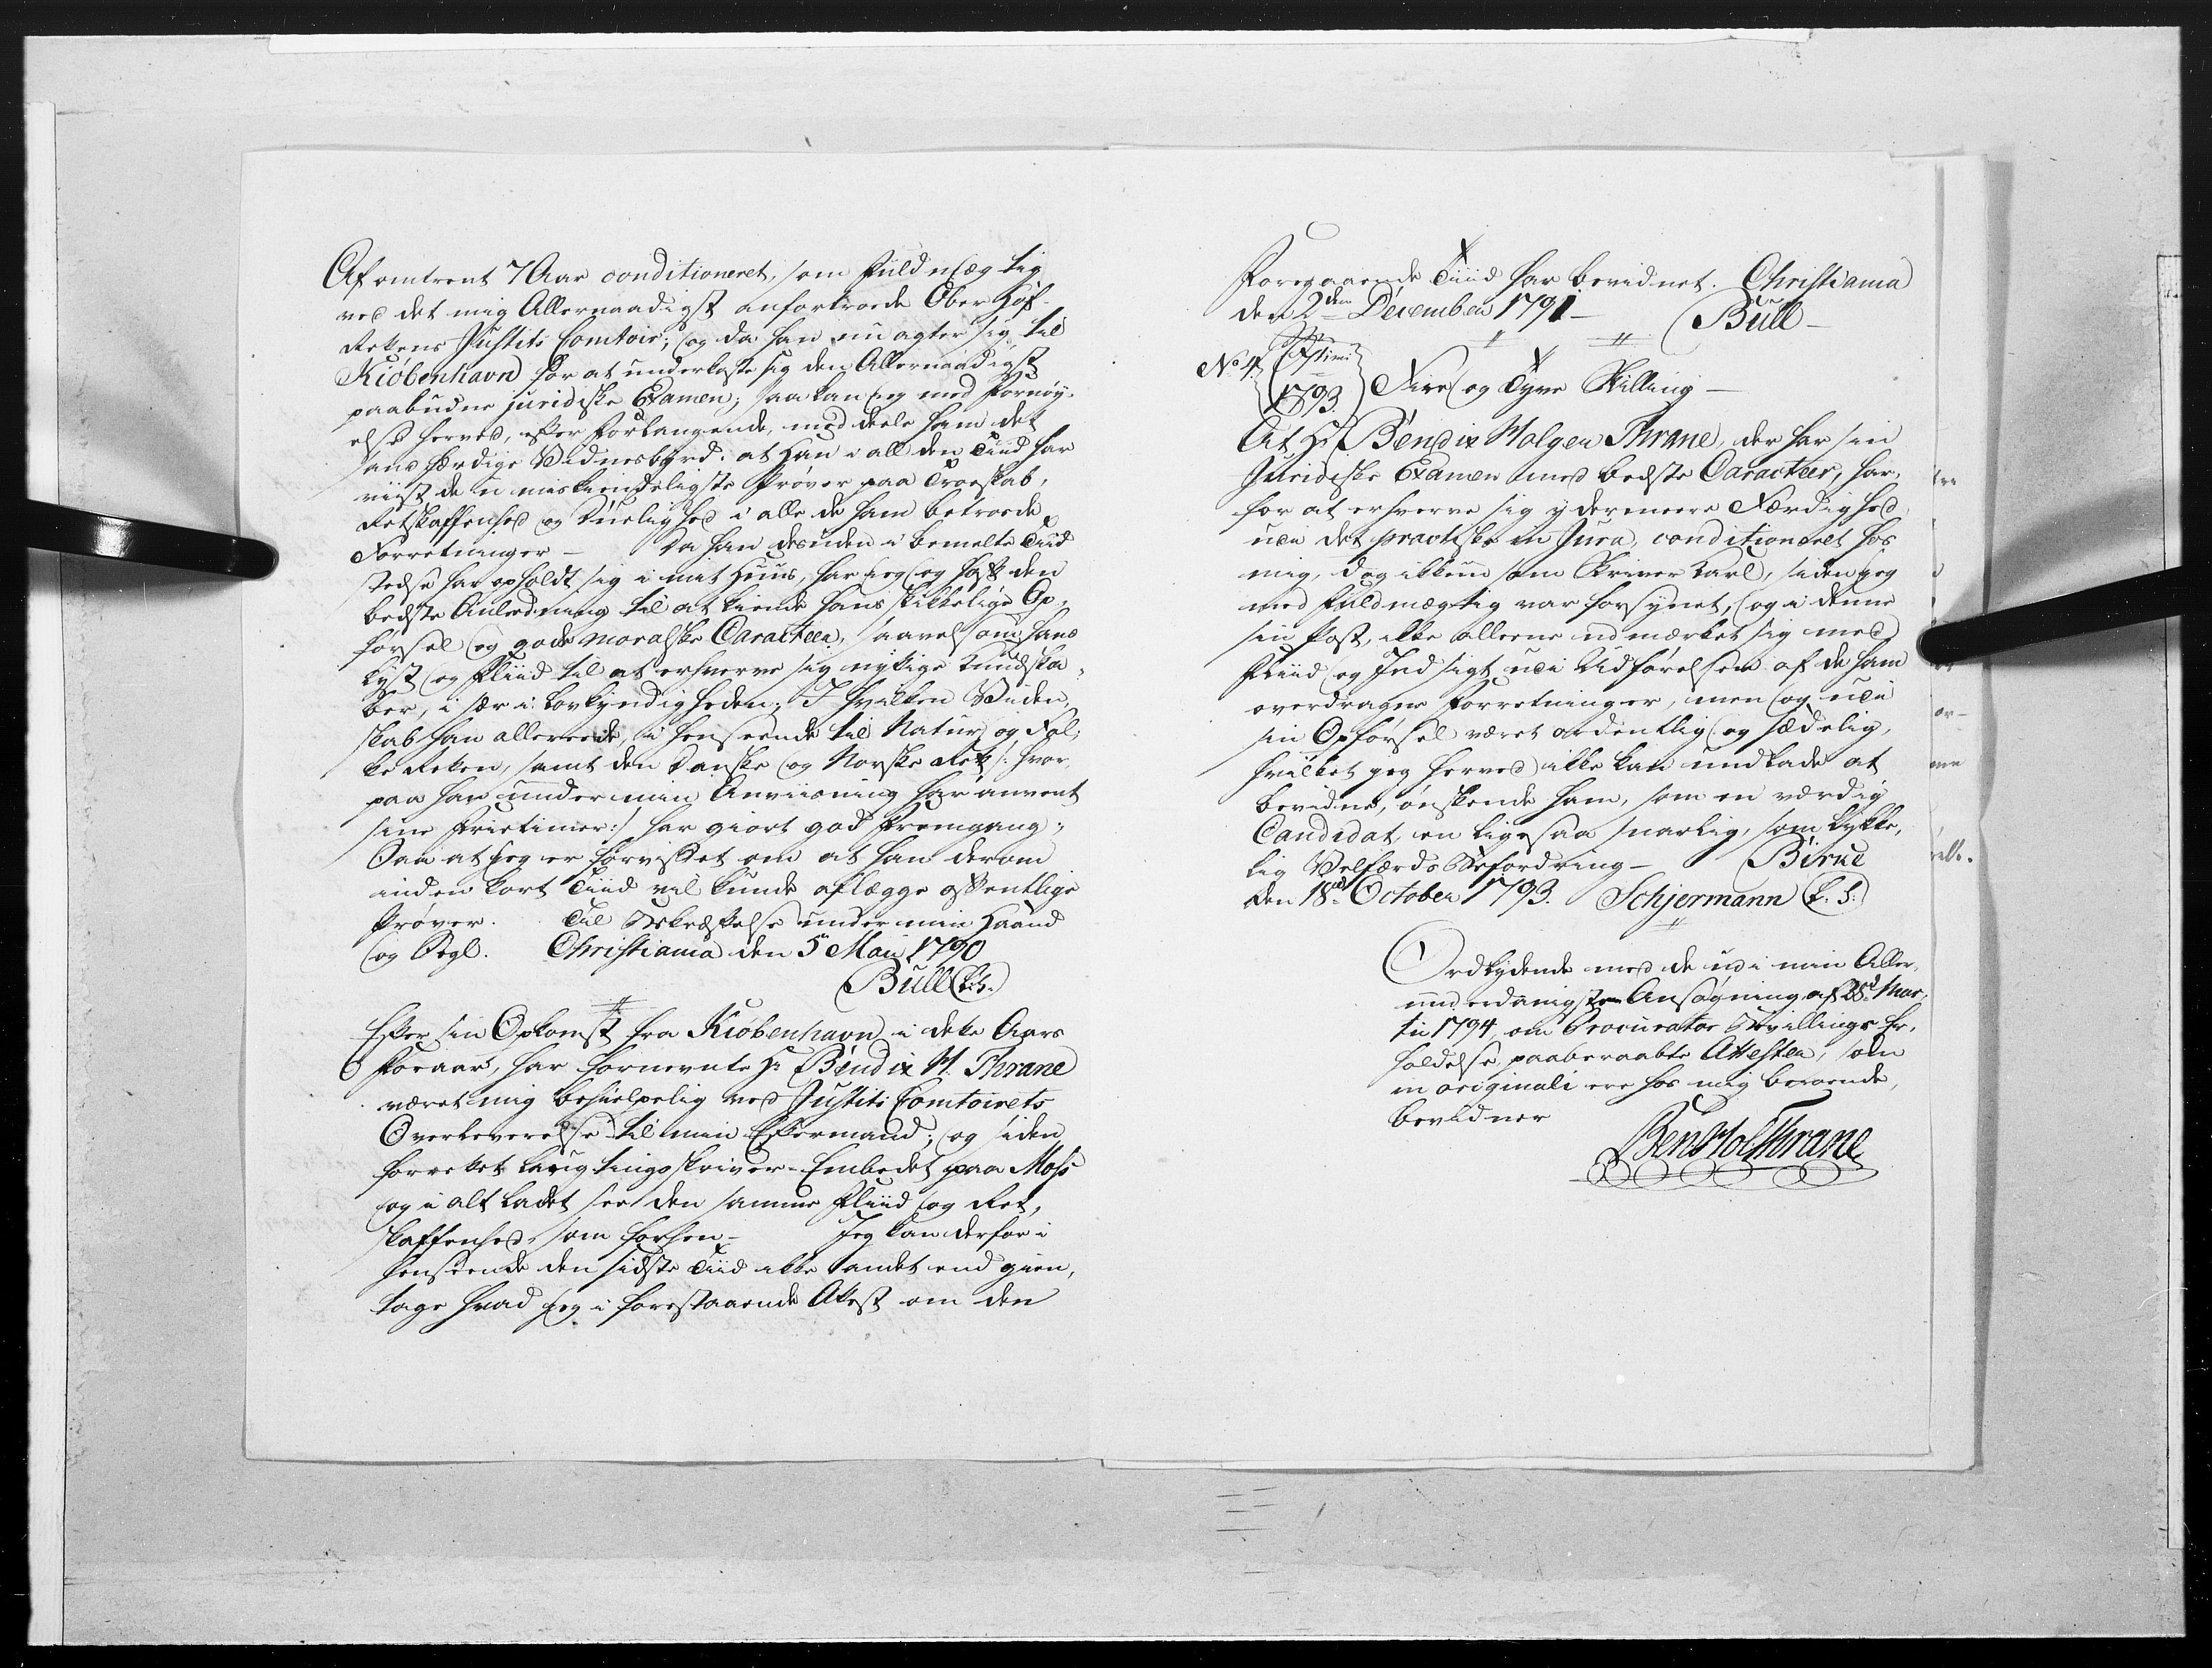 Af omtrent 7 Aar conditioneret, som Fuldmægtig
ved det mig Allernaadigst anfortroede Ober Hof-
Rettens Justits Comtoir; og da han nu agter sig til
Kiøbenhavn for at underkaste sig den Allernaadigst
paabudne juridiske Examen; saa kan jeg med Fornøy-
else herved, efter Forlangende, meddeele ham det
sandfærdige Vidnesbyrd: at han i all den Tiid har
viist de u miskiendeligste Prøver paa Troeskab,
Retskaffenhed og Duelighed i alle de ham betroede
Forretninger – Da han desuden i bemelte Tiid
stedse har opholdt sig i mit Huus, har jeg og havt den
bedste Anledning til at kiende hans skikkelige Op-
førsel og gode moralske Caracteer, saavelsom hans
Lyst og Fliid til at erhverve sig nyttige Kundska-
ber, i sær i Lovkyndigheden; I hvilken Viden-
skab han allereede, i Henseende til Natur og Fol-
ke Retten, samt den Danske og Norske Ret /: hvor-
paa han under min Anviisning har anvent
sine Frietimer :/ har giort god Fremgang;
Saa at jeg er forvisset om at han derom
inden kort Tiid vil kunde aflægge offentlige
Prøver. Til Bekræftelse under min Haand
og Segl. Christiania den 5te Maii 1790
Bull (L.S.)
Efter sin Opkomst fra Kiøbenhavn i dette Aars
Foraar, har fornevnte Hr Bendix H. Thrane
været mig behielpelig ved Justits Comtoirets
Overleverelse til min Eftermand; og siden
forrettet Laugtingsskriver-Embedet paa Moss
og i alt ladet see den samme Fliid og Ret-
skaffenhed, som forhen – Jeg kan derfor i
Henseende den sidste Tiid ikke andet end gien-
tage hvad jeg i forestaaende Attest om den
Foregaaende Tiid har bevidnet. Christiania
den 2den December 1791 –
Bull –
No 4 1793. Fire og Tyve Skilling –
At Hr Bendix Holger Thrane, der har sin
Juridiske Examen med bedste Caracteer, har,
for at erhverve sig ydermeere Færdighed
udi det practiske in Jura, conditioneret hos
mig, dog ikkun som Skriver Karl, siden jeg
med Fuldmægtig var forsynet, og i denne
sin Post, ikke alleene udmærket sig med
Fliid og Indsigt udi Udførelsen af de ham
overdragne Forretninger, men og udi
sin Opførsel været ordentlig og sædelig,
hvilket jeg herved ikke kan undlade at
bevidne, ønskende ham, som en værdig
Candidat, en ligesaa snarlig, som lykke-
lig Velfærds Befordring –
den 18de October 1793. Schjermann (L.S.)
Ordlydende med de udi min Aller-
underdanigste Ansøgning af 28de Mar-
tii 1794 om Procurator Bevillings Er-
holdelse paaberaabte Attester, som
in originali ere hos mig beroende,
bevidner
Ben Hol Thrane